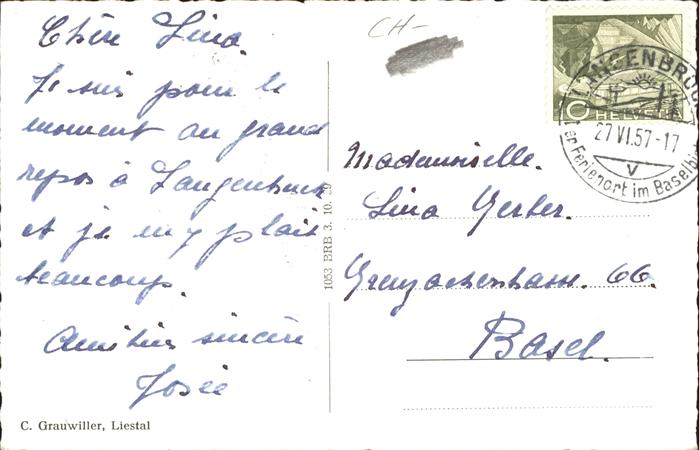 Chère Lina.
Je suis pour le
moment au grand
repos à Langenbruck
et je m'y plait
beaucoup.
Amitiés sincère
Josée
C. Grauwiller, Liestal
1053 BRB 3. 10. 39
CH-
HELVETIA
LANGENBRUCK
27 VI.57-17
V
der Ferienort im Baselb
Mademoiselle.
Lina Gerber.
Grenzacherstrasse. 66.
Basel.